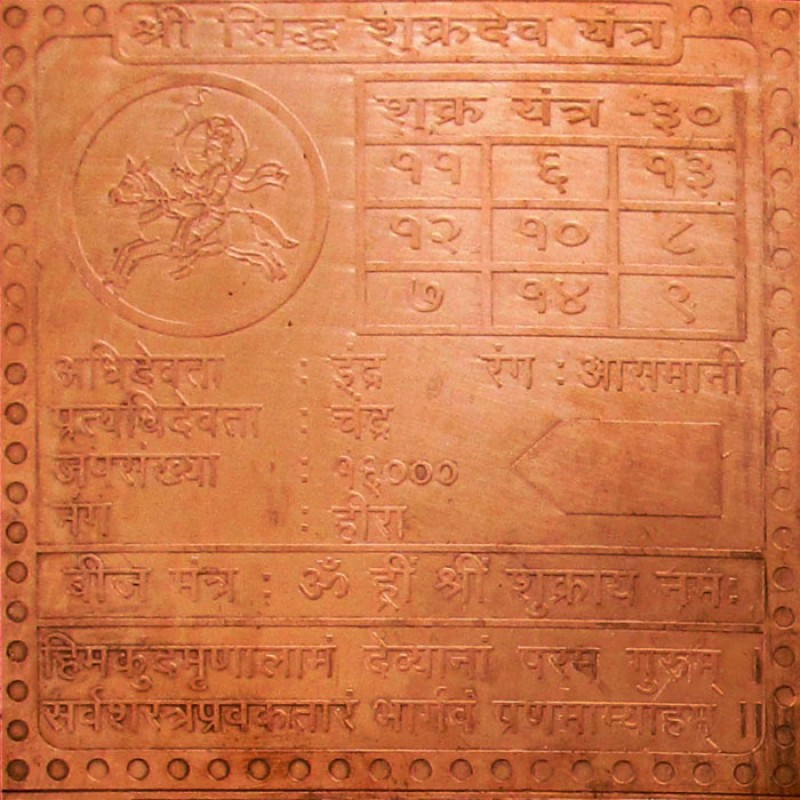 श्री सिद्ध शुक्रदेव यंत्र
शुक्र यंत्र -३०
११ ६ १३
१२ १० ८
७ १४ ९
अधिदेवता : इंद्र रंग : आसमानी
प्रत्यधिदेवता : चंद्र
जपसंख्या : १६०००
नंग : हीरा
बीज मंत्र : ॐ ह्रीं श्रीं शुक्राय नमः
हिमकुदमृणालामं देव्यानां परम गुरूम् ।
सर्वशस्त्रप्रवकतारं भार्गवं प्रणमाम्याहम् ॥